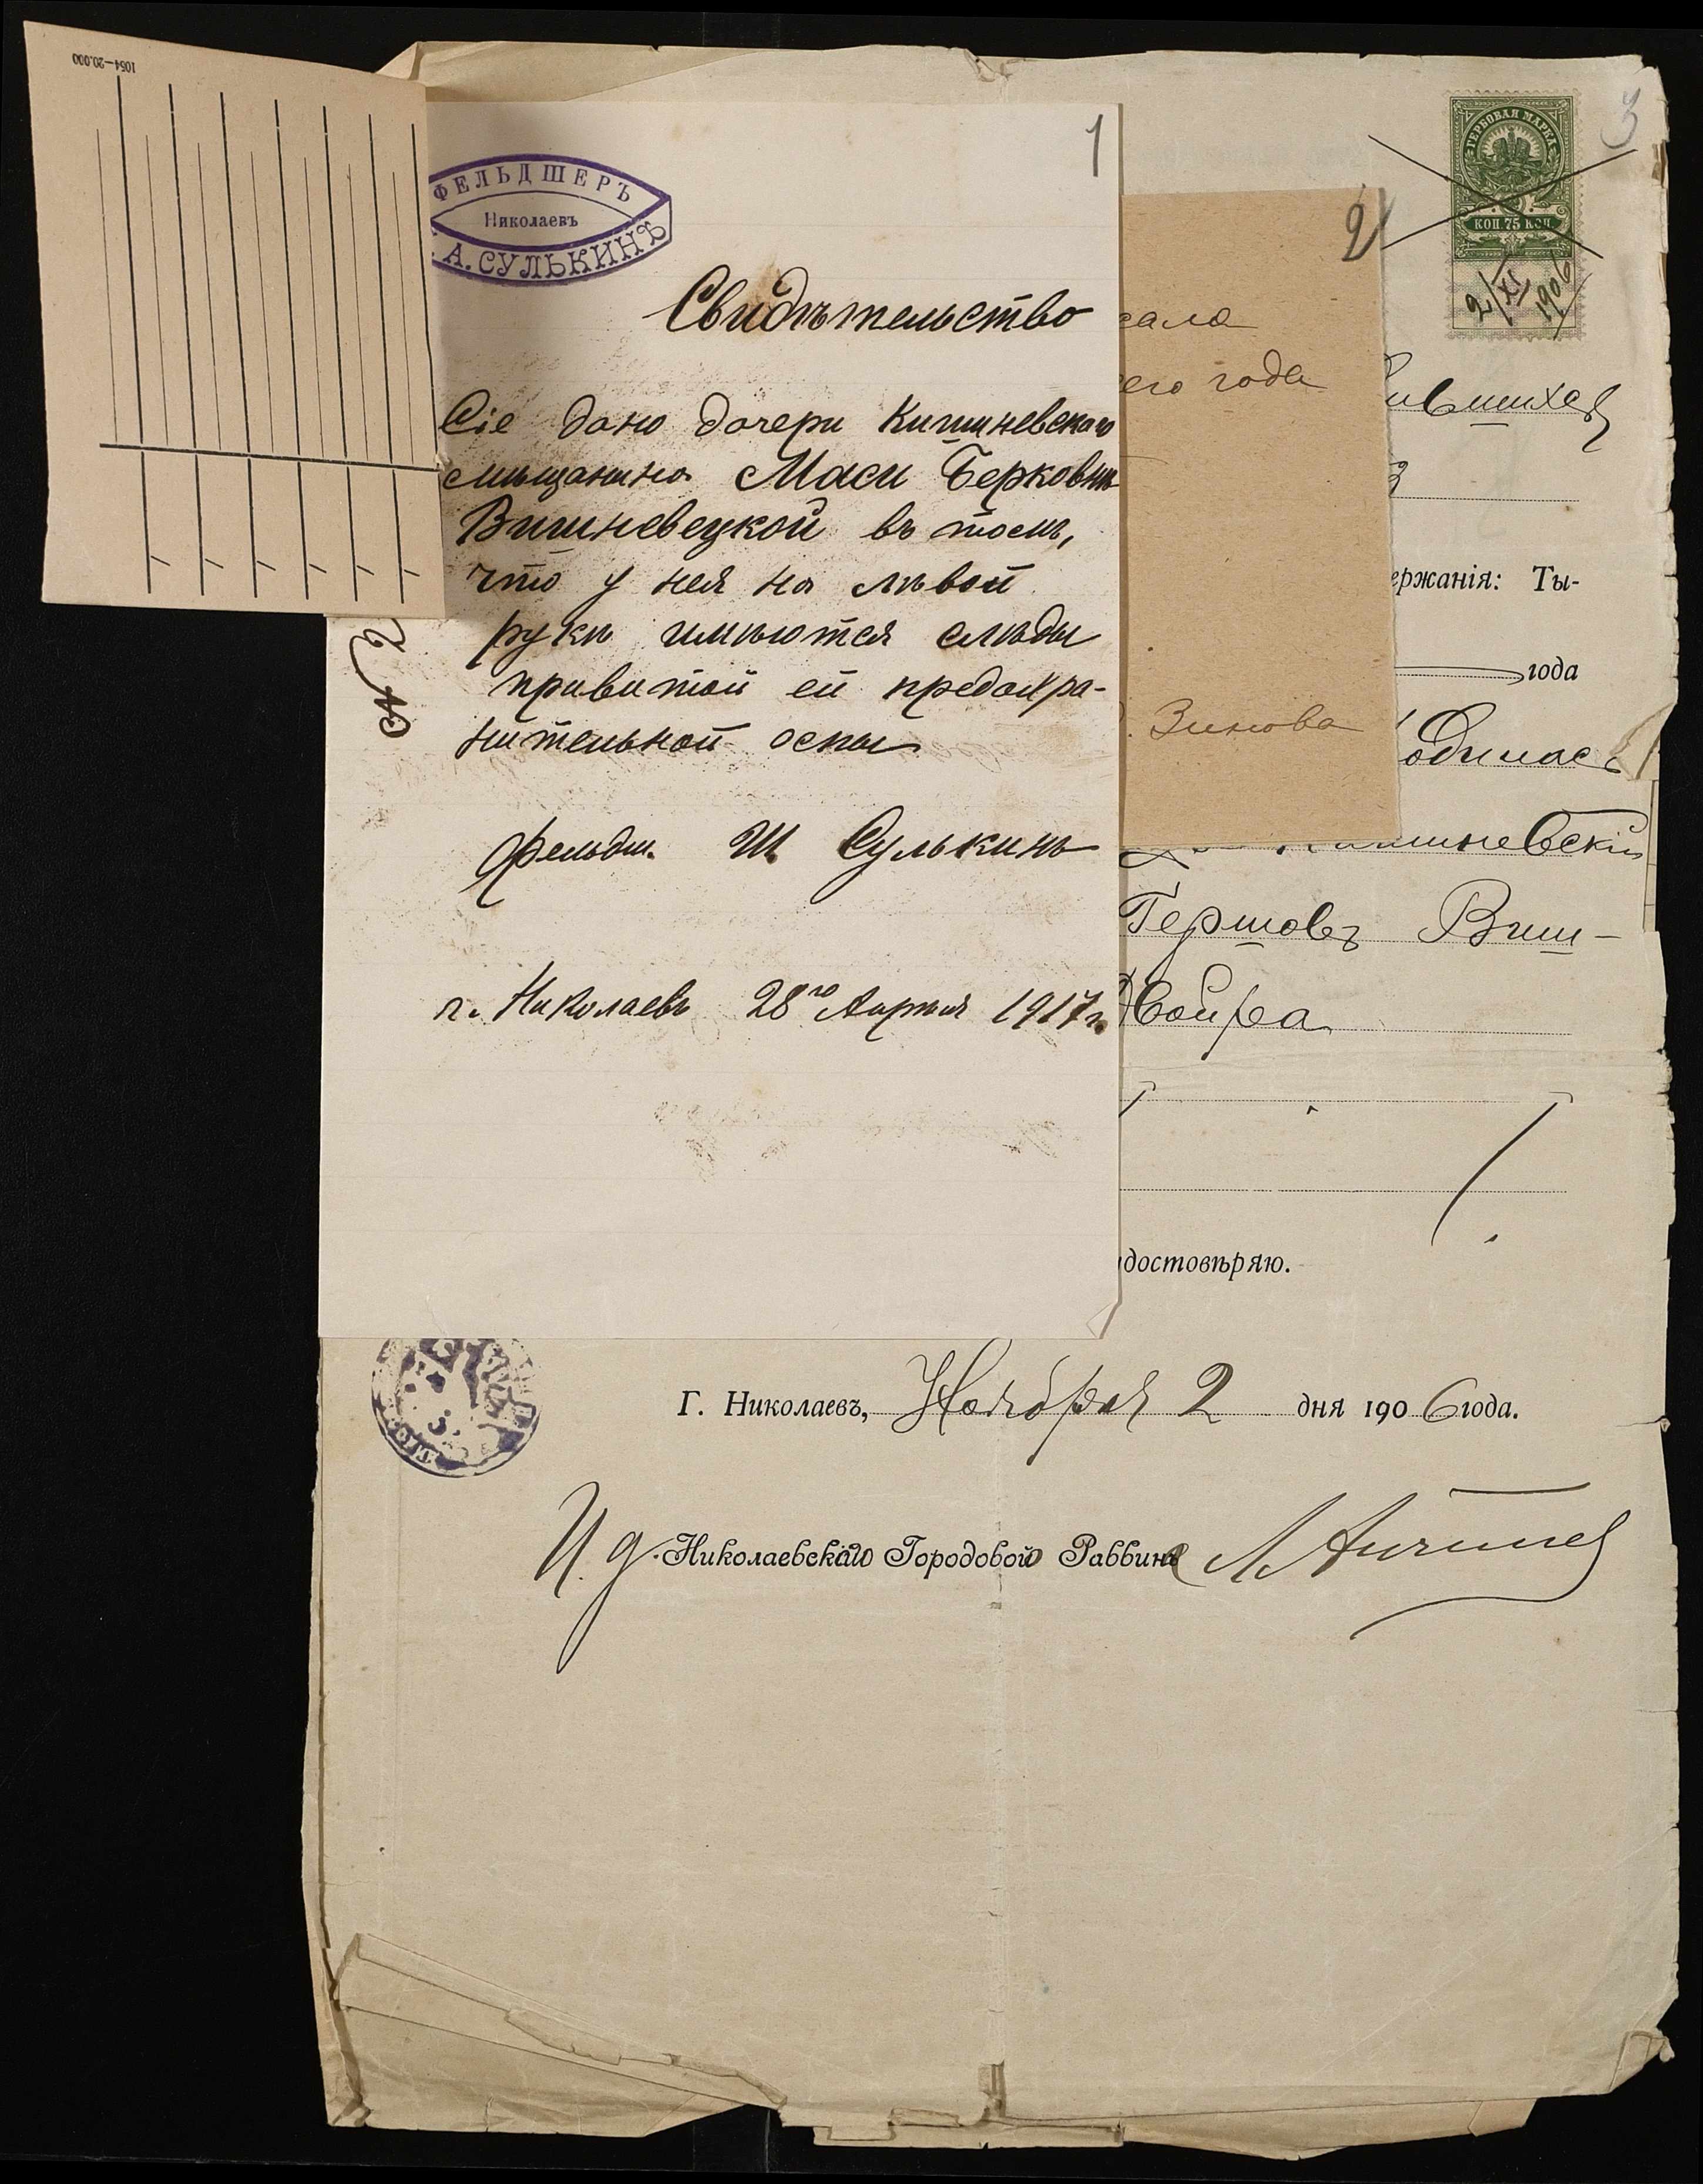 1054—20.000
1
ФЕЛЬДШЕРЪ
Николаевъ
А. СУЛЬКИНЪ
Свидѣтельство
Сіе дано дочери Кишиневскаго
мѣщанина Маси Берковнѣ
Вишневецкой въ томъ,
что у нея на лѣвой
рукѣ имѣются слѣды
привитой ей предохра-
нительной оспы
Фельдш. Ш. Сулькинъ
г. Николаевъ 28го Апрѣля 1917 г.
№ 2
2
сала
сего года
Зинова
3
ГЕРБОВАЯ МАРКА
КОП. 75 КОП.
2/XI 1906
ившихся
ержанія: Ты-
года
одилась
Кишиневскій
Гершовъ Виш-
Двойра
достовѣряю.
Г. Николаевъ, Ноября 2 дня 1906 года.
И. д. Николаевскаго Городового Раввина